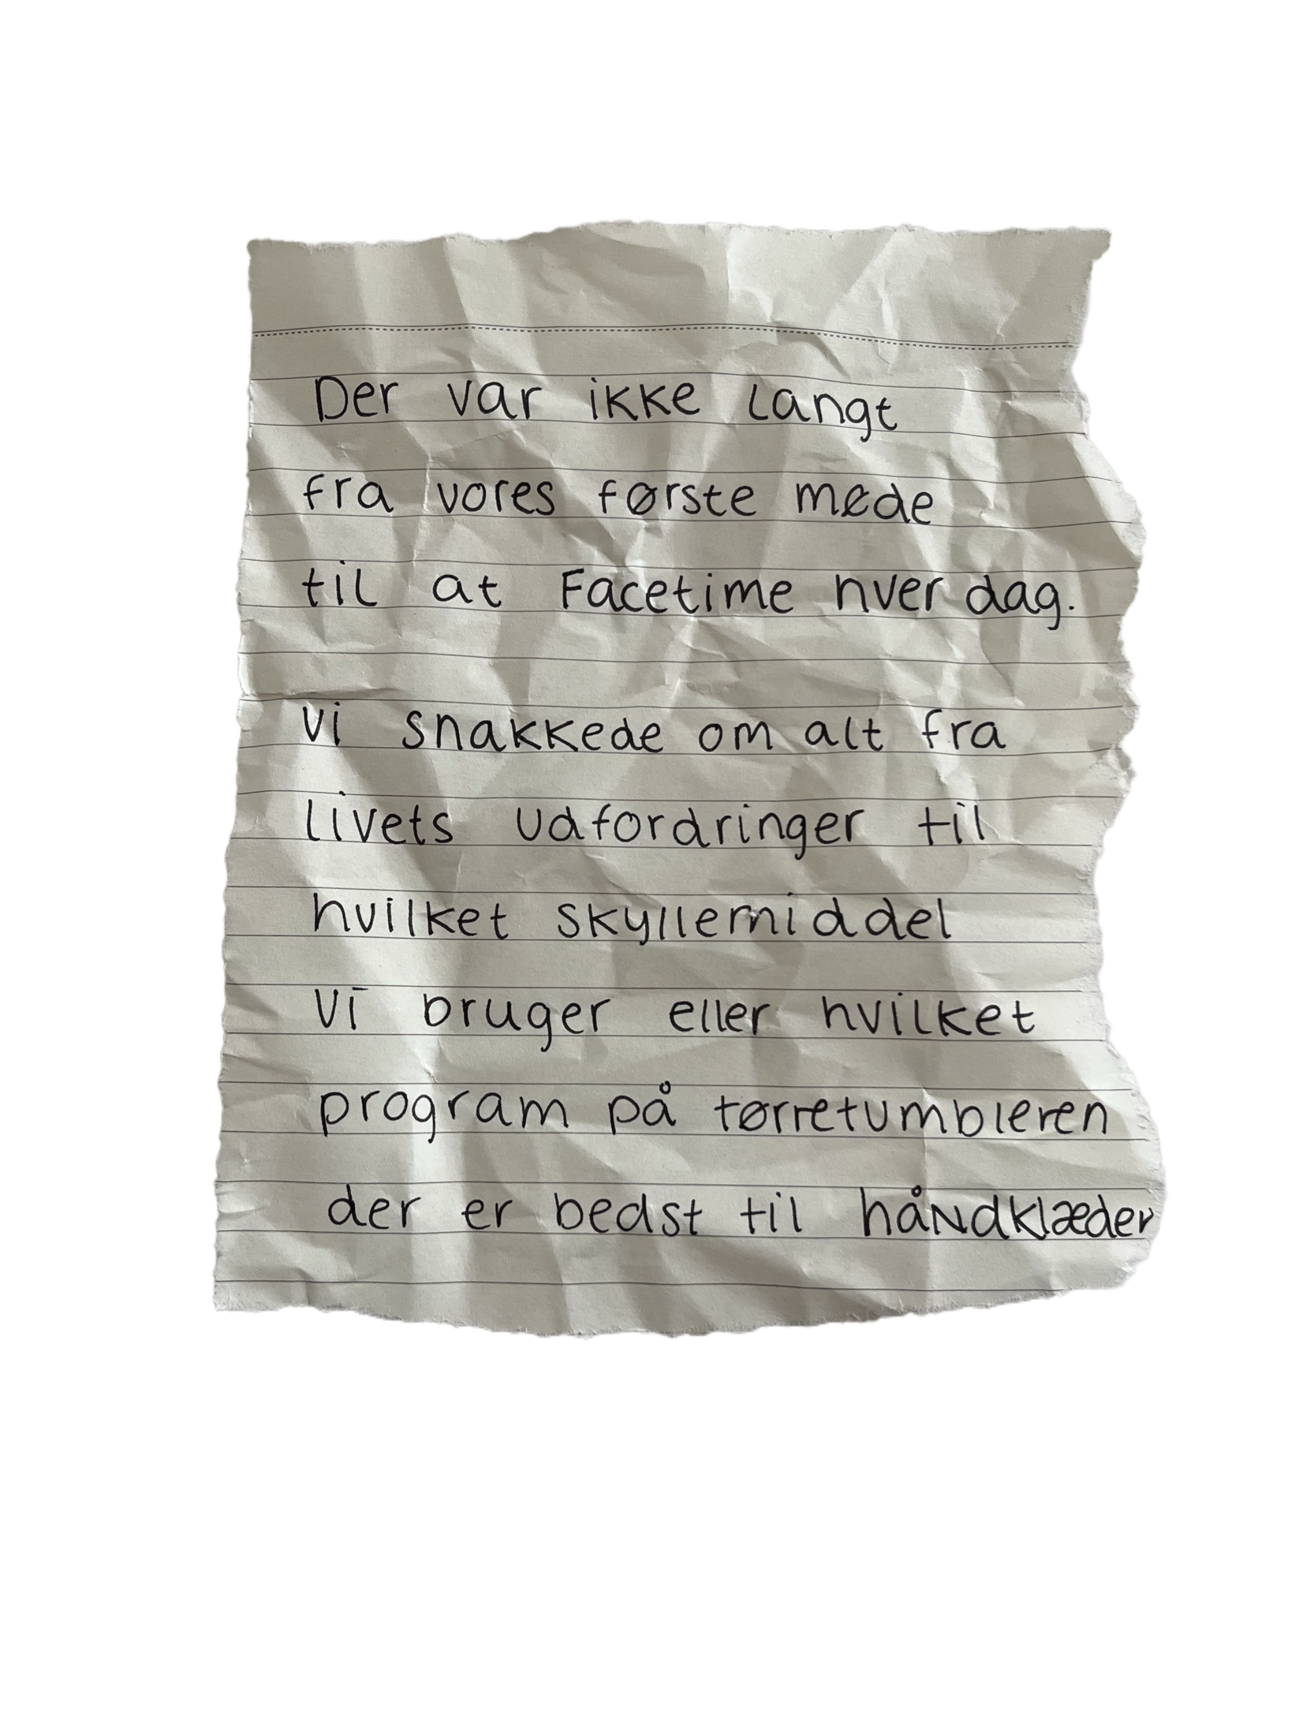 Der var ikke langt
fra vores første møde
til at Facetime hver dag.
Vi snakkede om alt fra
livets udfordringer til
hvilket skyllemiddel
Vi bruger eller hvilket
program på tørretumbleren
der er bedst til håndklæder